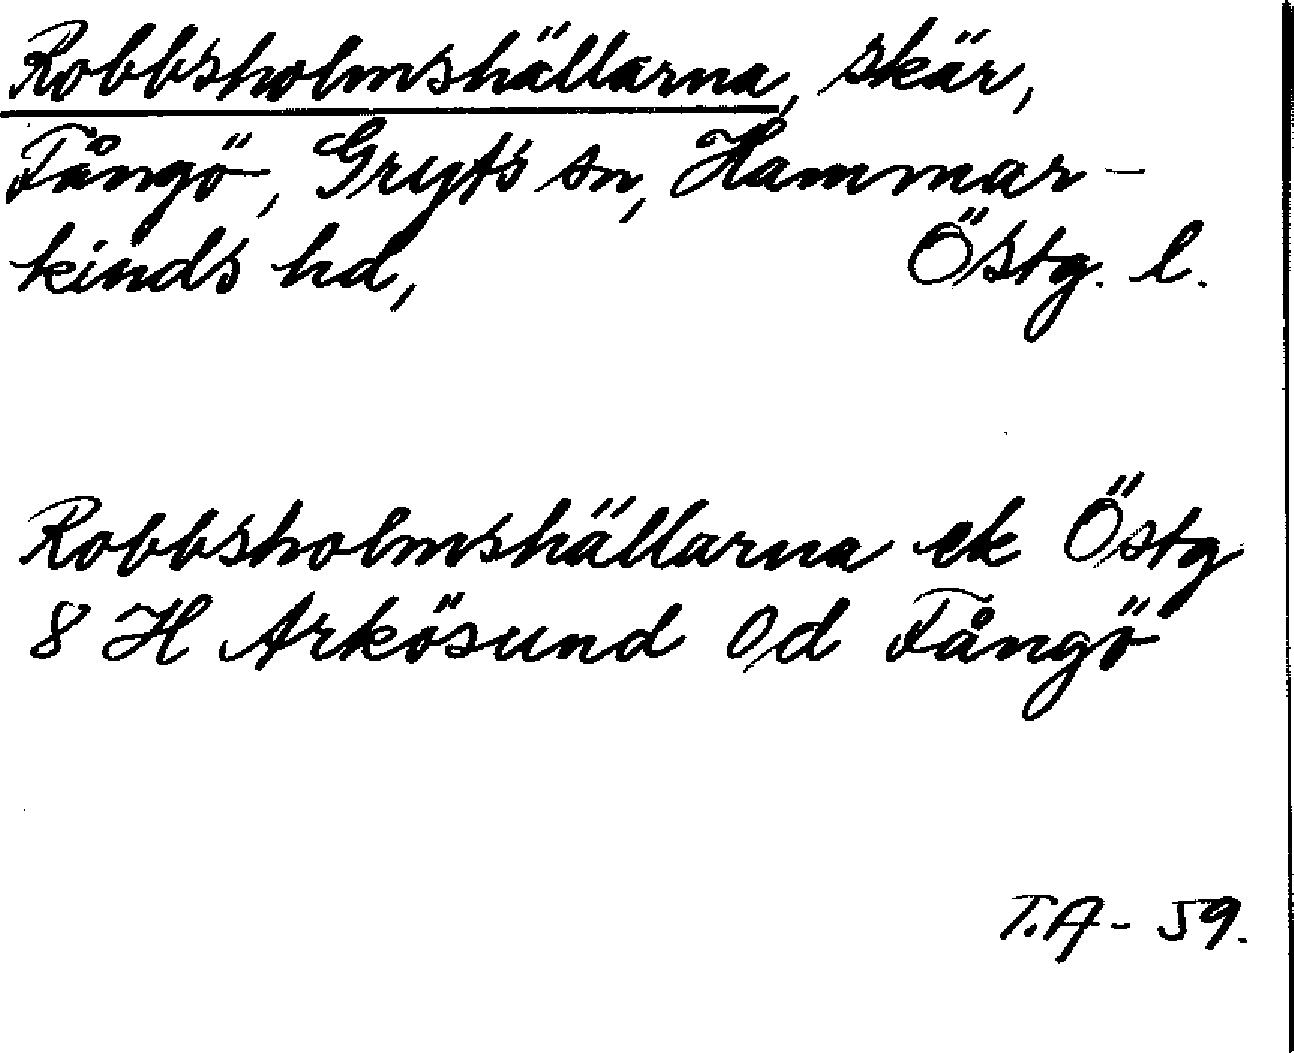 Robbsholmshällarna, skär,
Fångö, Gryts sn, Hammar-
kinds hd, Östg. l.
Robbsholmshällarna ek Östg
8 H Arkösund 0,d Fångö
T.A - 59.